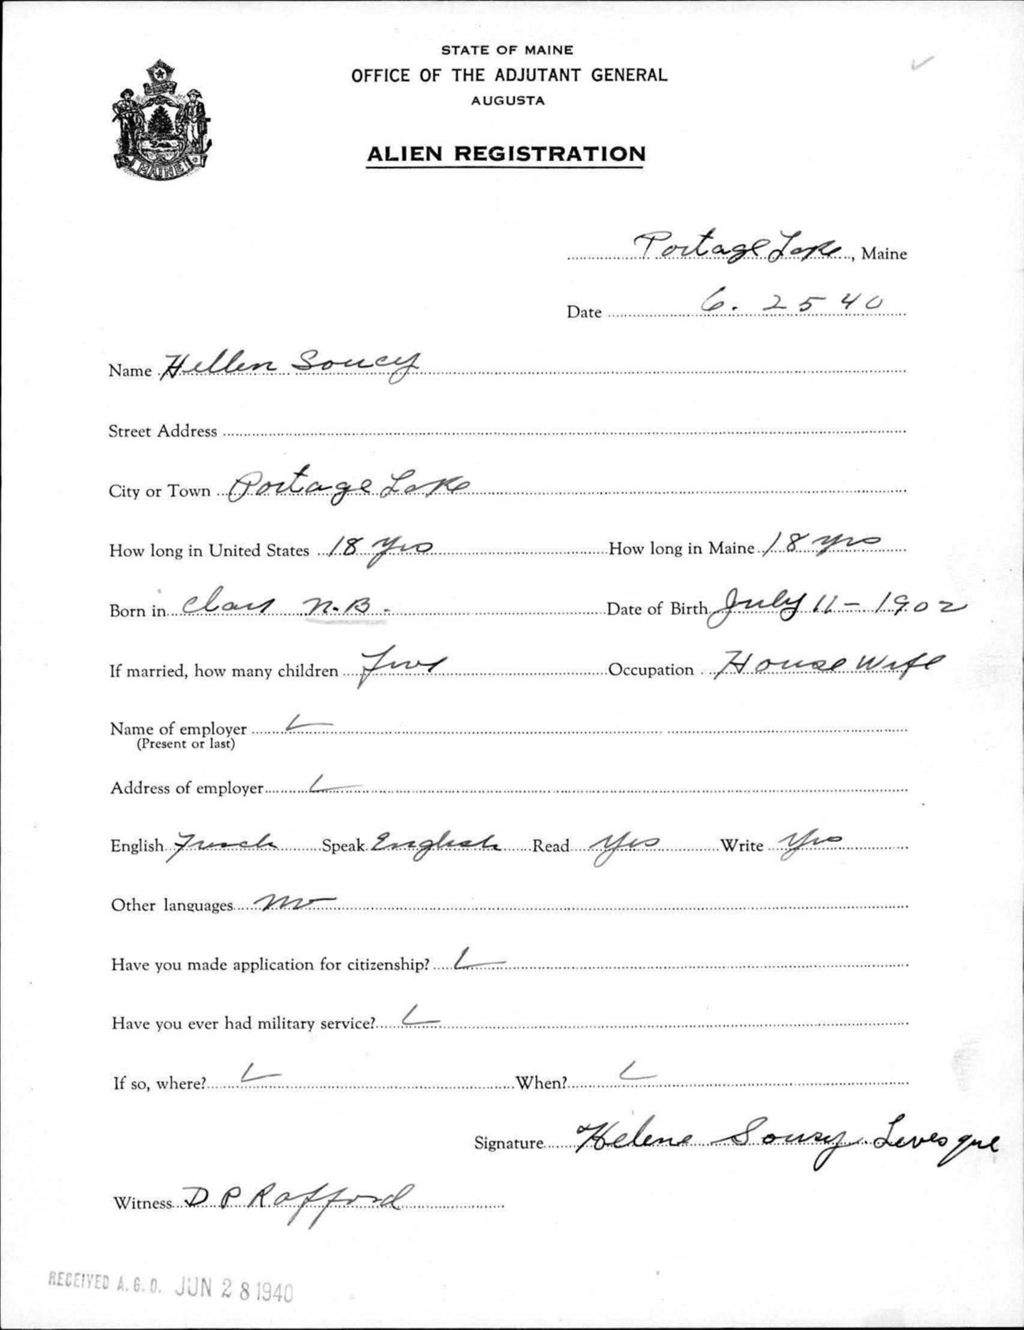 STATE OF MAINE
OFFICE OF THE ADJUTANT GENERAL
AUGUSTA
ALIEN REGISTRATION
MAINE
Portage Lake, Maine
Date 6. 25 40
Name Hellen Soucy
Street Address
City or Town Portage Lake
How long in United States 18 yrs How long in Maine 18 yrs
Born in Clair N.B. Date of Birth July 11 - 1902
If married, how many children Occupation House Wife
Name of employer
(Present or last)
Address of employer
English French Speak English Read Yes Write Yes
Other languages no
Have you made application for citizenship?
Have you ever had military service?
If so, where? When?
Signature Helene Soucy Levesque
Witness D P Rafford
RECEIVED A.G.O. JUN 28 1940